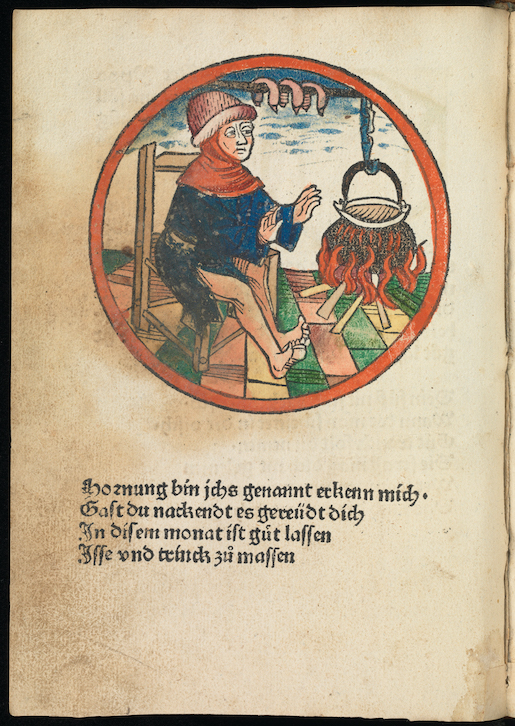 Hornung bin jchs genannt erkenn mich.
Gast du nackendt es gereüdt dich
In disem monat ist gůt lassen
Isse vnd trinck zů massen